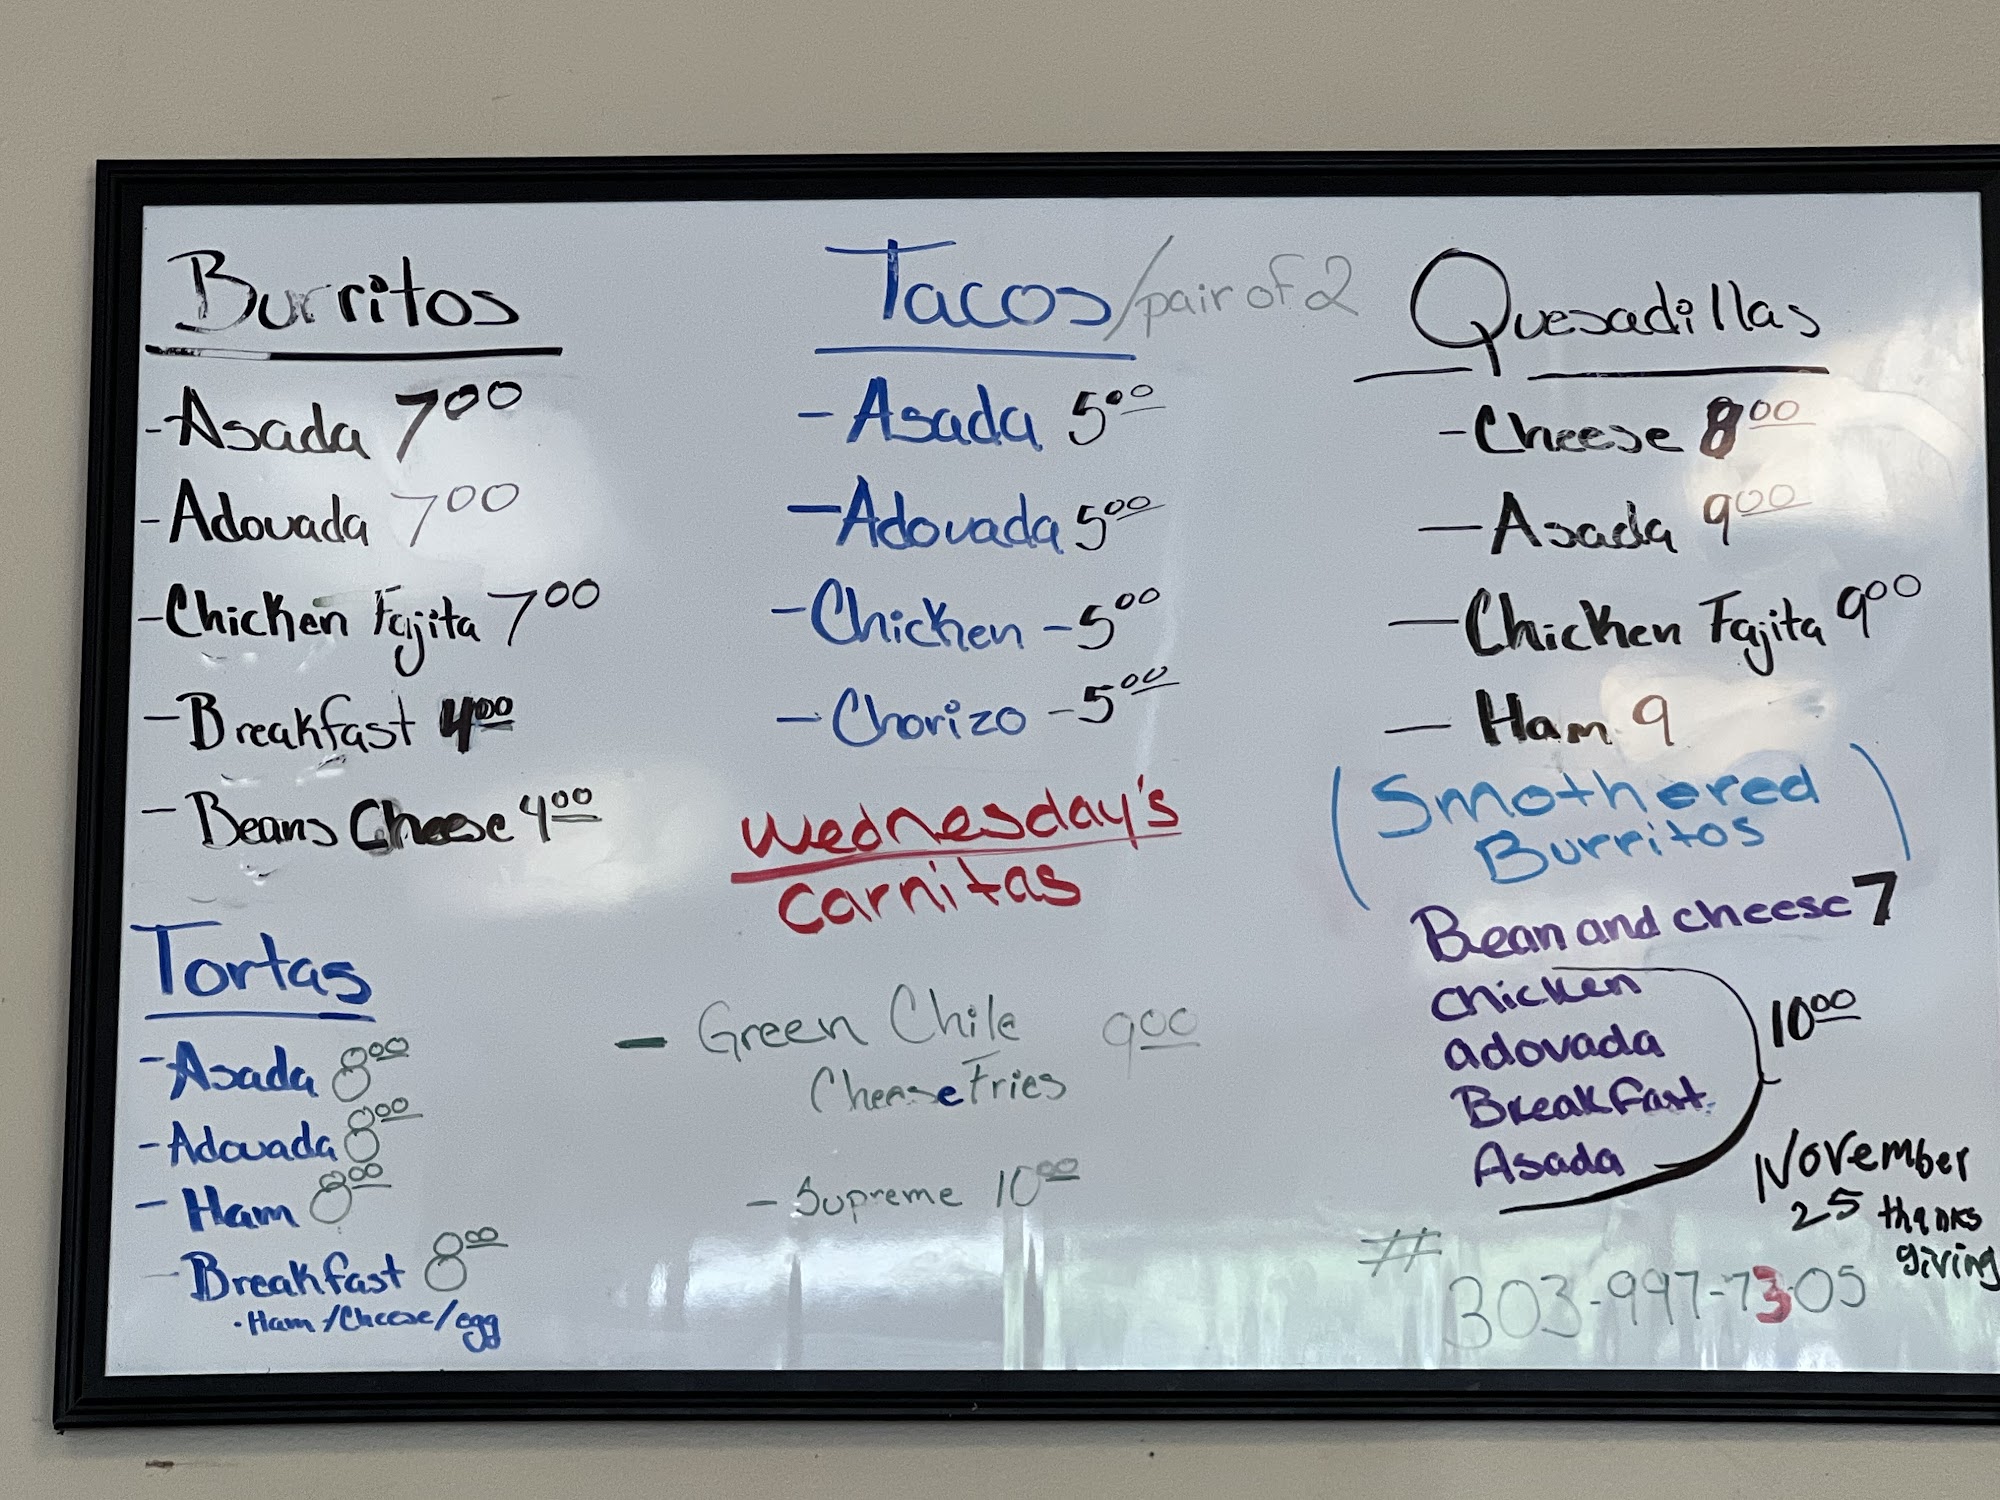 Burritos
-Asada 7 00
-Adovada 7 00
-Chicken Fajita 7 00
-Breakfast 4 00
-Beans Cheese 4 00
Tortas
-Asada 8 00
-Adovada 8 00
-Ham 8 00
-Breakfast 8 00
·Ham/Cheese/egg
Tacos/pair of 2
-Asada 5 00
-Adovada 5 00
-Chicken -5 00
-Chorizo -5 00
Wednesday's
Carnitas
-Green Chile 9 00
Cheese Fries
-Supreme 10 00
Quesadillas
-Cheese 8 00
-Asada 9 00
-Chicken Fajita 9 00
-Ham 9
(Smothered
Burritos)
Bean and cheese 7
chicken
adovada
Breakfast
Asada
10 00
November
25 thanks
giving
# 303-997-7305